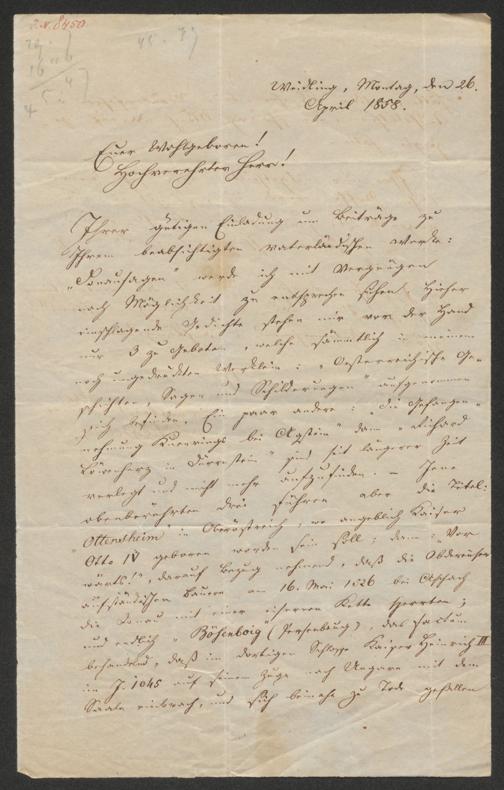 I. N. 8450
45. 79
Weidling, Montag, den 26.
April 1858.
Euer Wohlgeboren!
Hochverehrter Herr!
Ihrer gütigen Einladung um Beiträge zu
Ihrem beabsichtigten vaterländischen Werke:
„Donausagen" werde ich mit Vergnügen
nach Möglichkeit zu entsprechen suchen. Hieher
einschlagende Gedichte stehen mir vor der Hand
nur 3 zu Gebote, welche sämmtlich in meinem
noch ungedruckten Werklein: „Oesterreichische Ge-
schichten, Sagen und Schilderungen" aufgenommen
sich befinden. Ein paar andere: „Die Gefangen-
nehmung Kuenrings bei Agstein" dann „Richard
Löwenherz in Dürrenstein" sind seit längerer Zeit
verlegt und nicht mehr aufzufinden. – Jene
obenberührten drei führen aber die Titel:
„Ottensheim" in Oberöstreich, wo angeblich Kaiser
Otto IV geboren worden sein soll; dann: „Vor
wärts!", darauf Bezug nehmend, daß die Obderenser
aufständischen Bauern am 16. Mai 1626 bei Aschach
die Donau mit einer eisernen Kette sperrten;
und endlich „Bösenboig (Persenbeug)", das Factum
behandend, daß im dortigen Schlosse Kaiser Heinrich III
im J. 1045 auf seinem Zuge nach Ungarn mit dem
Saale einbrach, und sich beinahe zu Tode gefallen